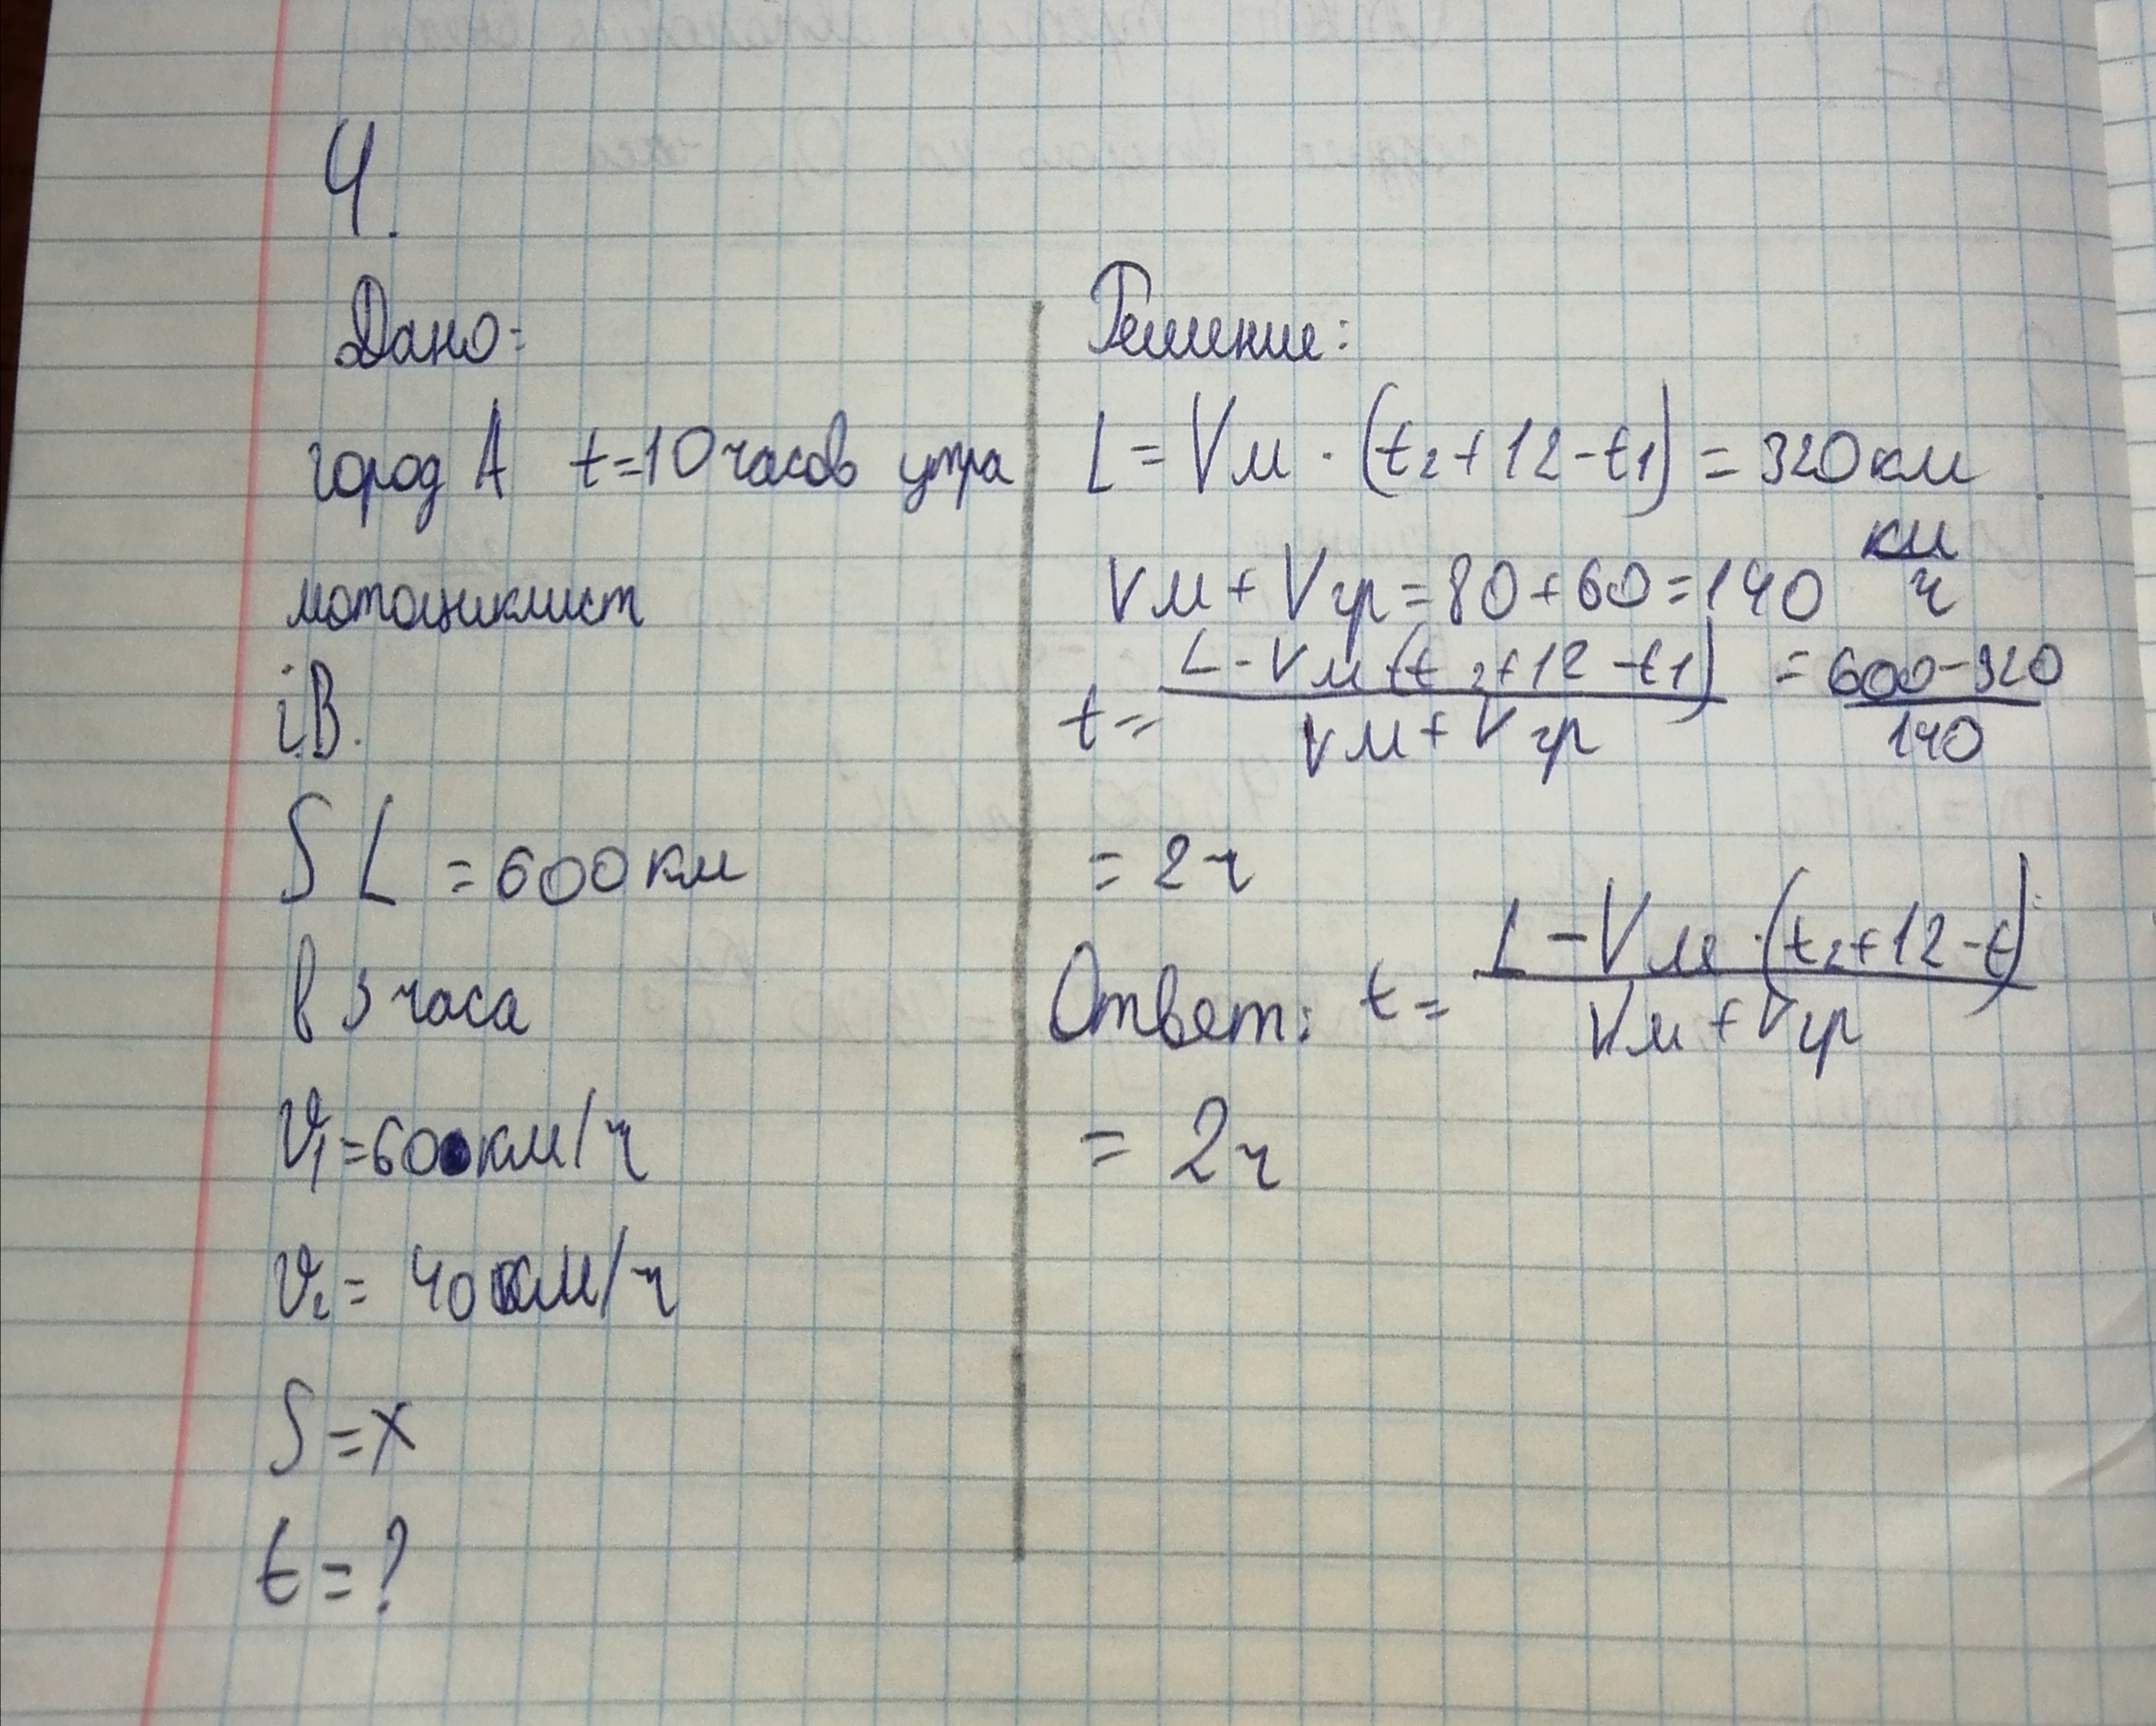 4.
Дано:
город А t=10 часов утра
мотоциклист
i B.
S L = 600 км
в 3 часа
V₁=60 км/ч
V₂= 40 км/ч
S=x
t=?
Решение:
L = Vм · (t₂+12-t₁) = 320 км
Vм + Vгр = 80+60=140 км/ч
t = (L - Vм (t₂+12-t₁))/(Vм + Vгр) = (600-320)/140
= 2ч
Ответ: t = (L - Vм · (t₂+12-t))/(Vм + Vгр)
= 2ч